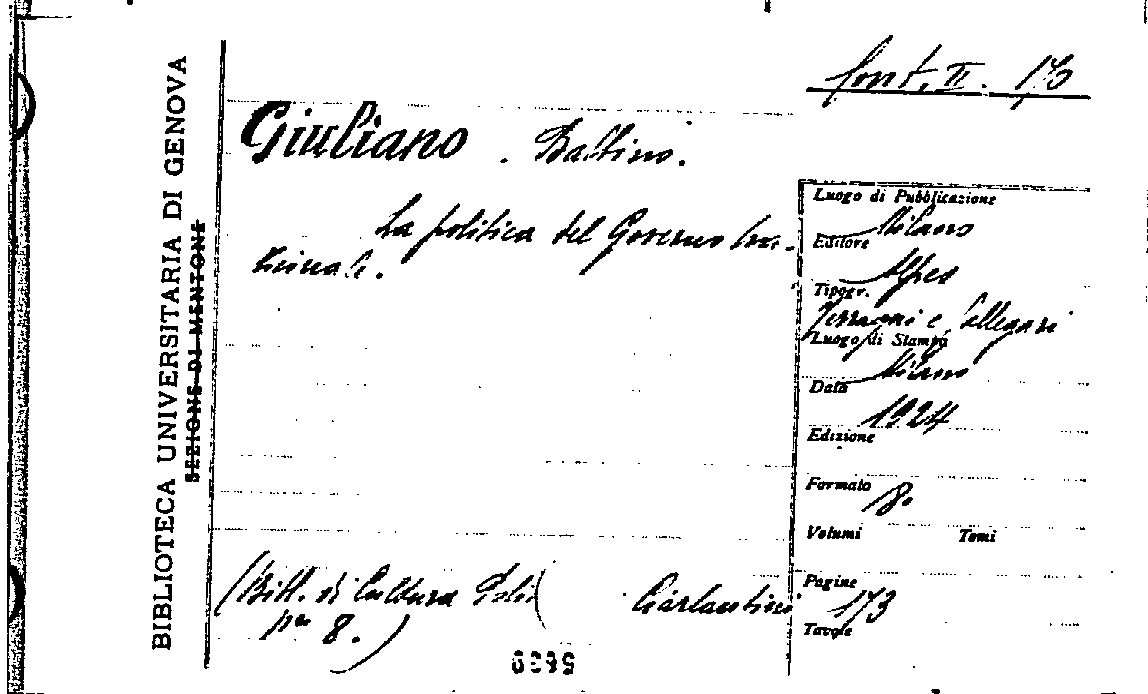 BIBLIOTECA UNIVERSITARIA DI GENOVA
SEZIONE DI MENTONE
font. II. 173
Giuliano . Balbino.
La politica del Governo
Luogo di Pubblicazione
Milano
Editore
Alpes
Tipogr.
e Callegari
Luogo di Stampa
Milano
Data
1924
Edizione
Formato
8°
Volumi Tomi
Pagine
173
Tavole
(Bibl. di Cultura
n° 8.)